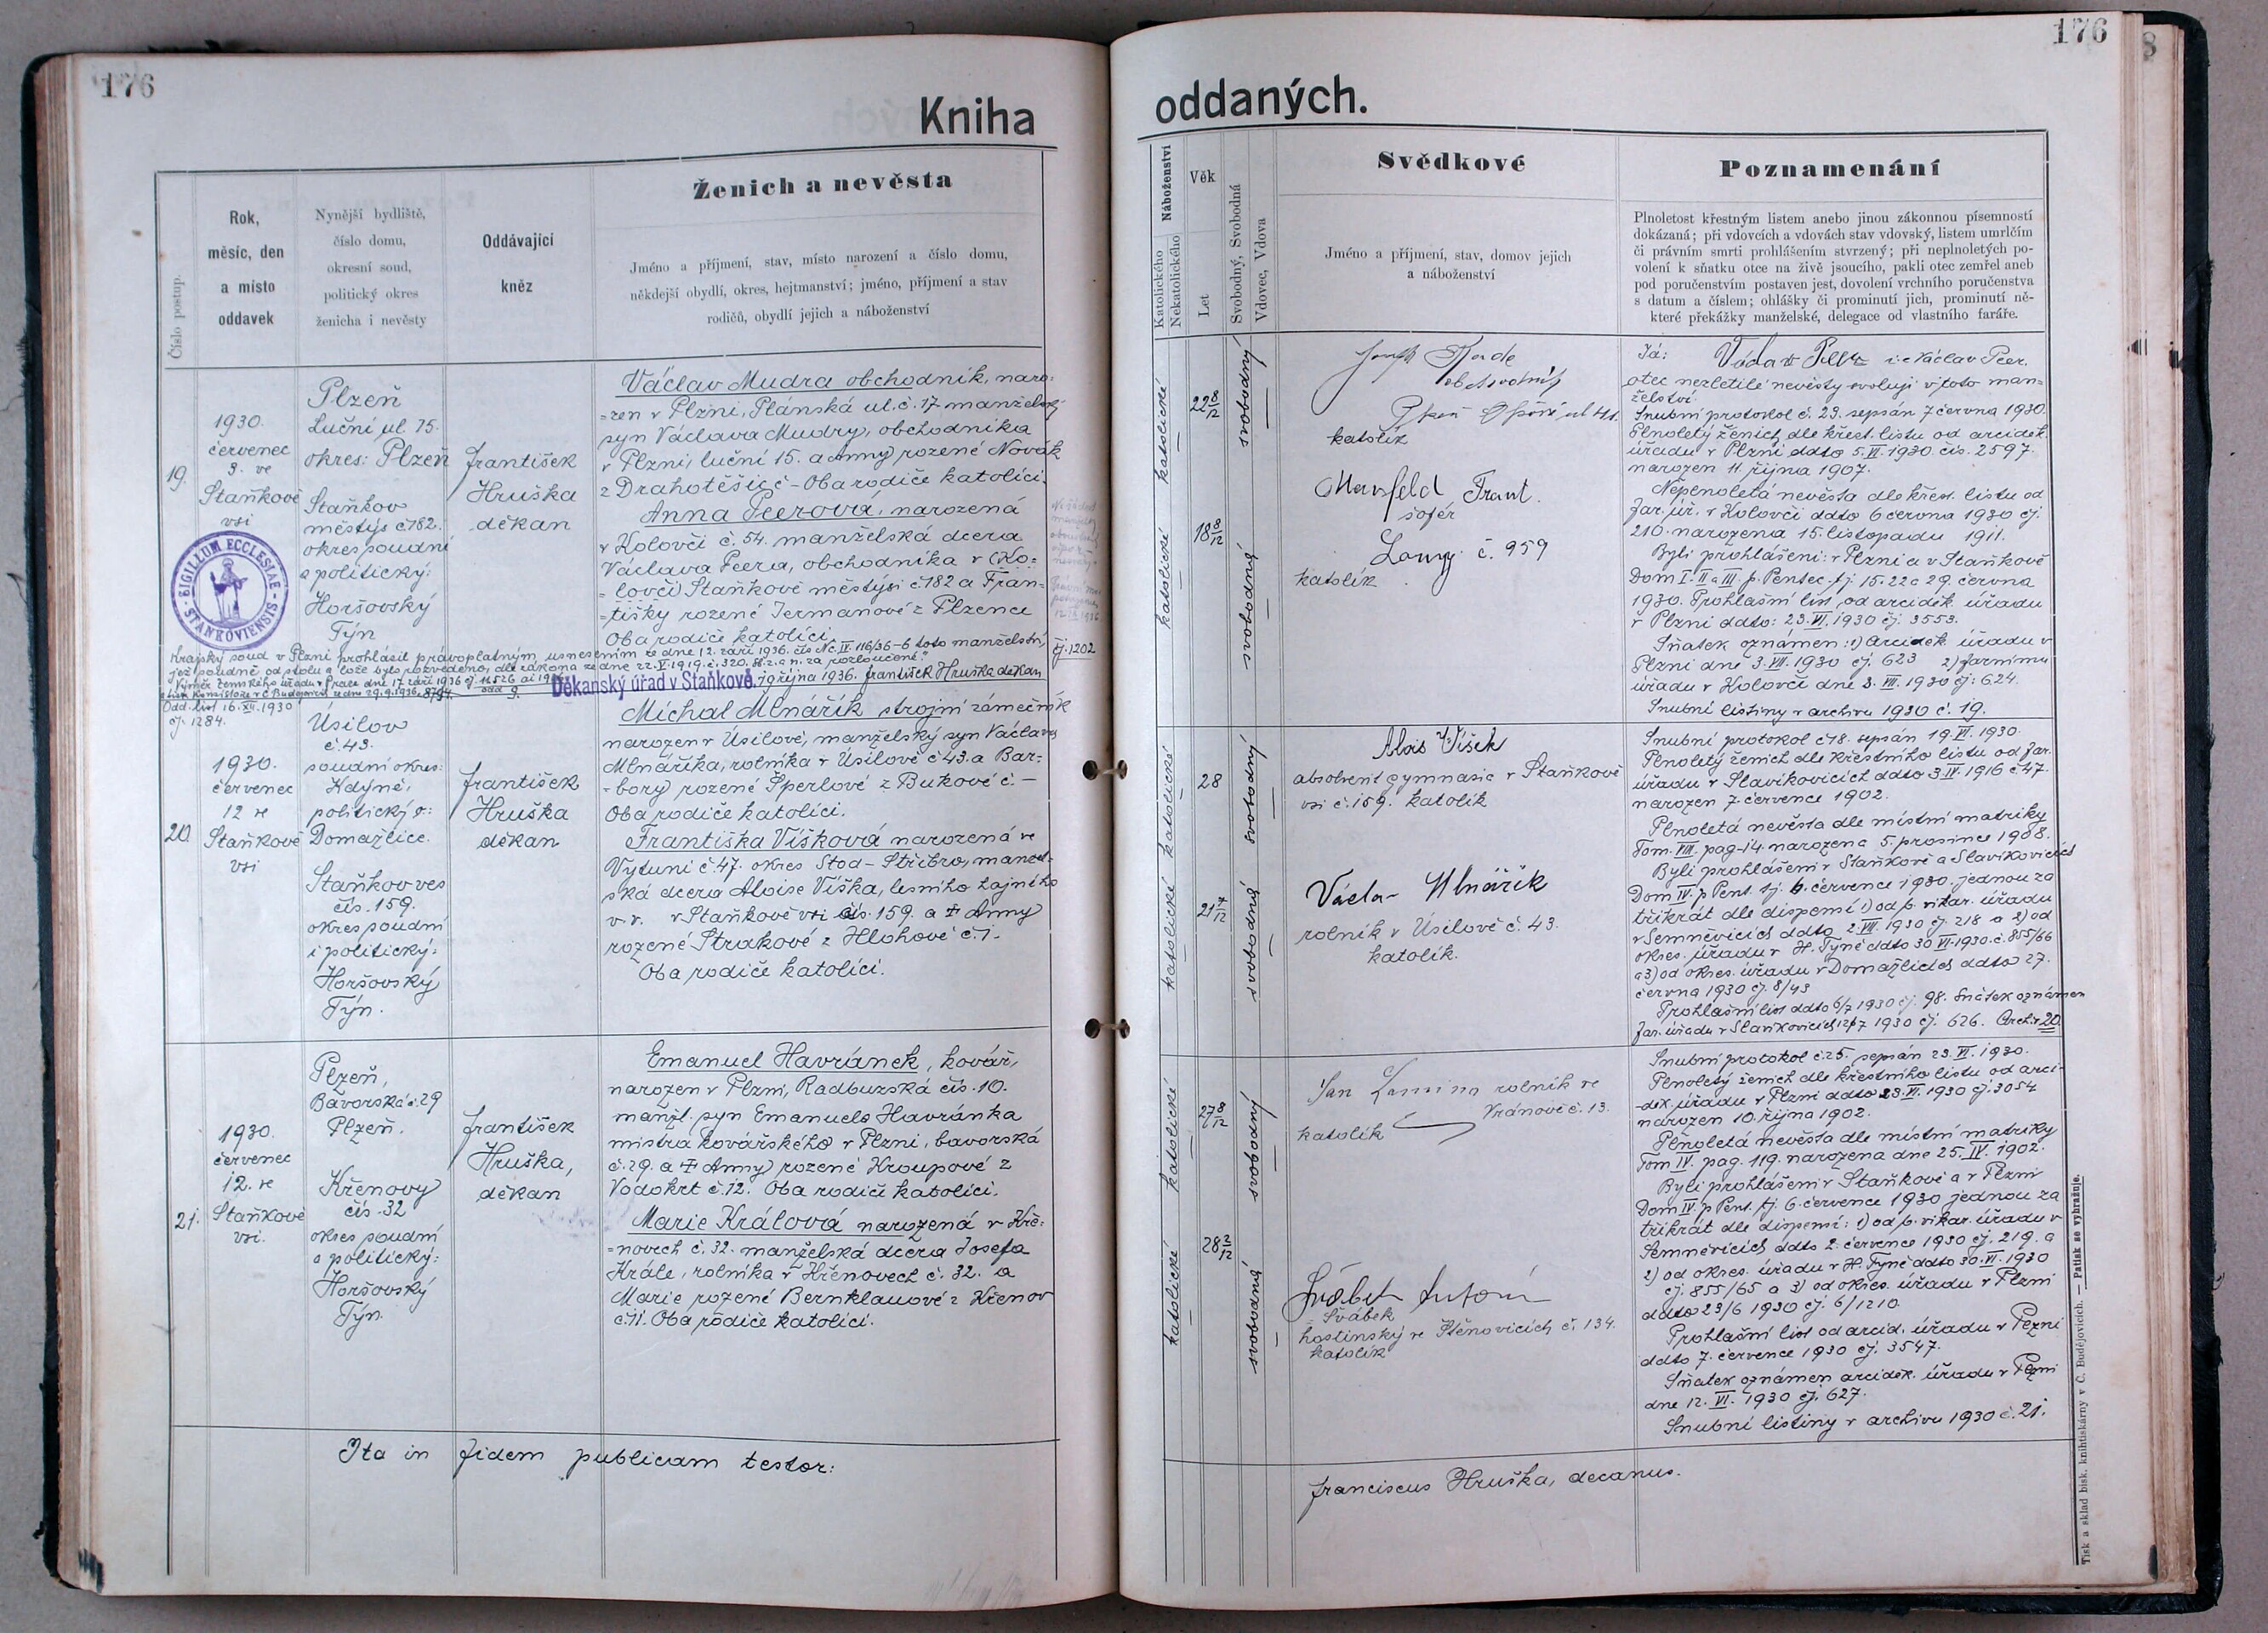 176
Kniha
Číslo postup.
Rok,
měsíc, den
a místo
oddavek
Nynější bydliště,
číslo domu,
okresní soud,
politický okres
ženicha i nevěsty
Oddávající
kněz
Ženich a nevěsta
Jméno a příjmení, stav, místo narození a číslo domu,
někdejší obydlí, okres, hejtmanství; jméno, příjmení a stav
rodičů, obydlí jejich a náboženství
19.
1930.
červenec
3. ve
Staňkově
vsi
SIGILLUM ECCLESIAE STANKOVIENSIS
Plzeň
Luční ul. 15.
okres: Plzeň
Staňkov
městýs č 182.
okres soudní
a politický:
Horšovský
Týn
František
Hruška
děkan
Václav Mudra obchodník, naro-
=zen v Plzni, Plánská ul. č. 17 manželský
syn Václava Mudry, obchodníka
v Plzni, luční 15. a Anny rozené Novák
z Drahotěšic č - Oba rodiče katolíci.
Anna Peerová, narozená
v Kolovči č. 54. manželská dcera
Václava Peera, obchodníka v (Ko-
=lovči) Staňkově městýsi č 182 a Fran-
=tišky rozené Jermanové z Plzence
Oba rodiče katolíci.
Krajský soud v Plzni prohlásil právoplatným usnesením ze dne 12. září 1936. čís Nc. IV 116/36-6 toto manželství,
čj. 1202
jež soudně od stolu a lože bylo rozvedeno, dle zákona ze dne 22. V. 1919. č. 320. Sb. z. a n. za rozloučené.
Děkanský úřad v Staňkově. 19 října 1936. František Hruška děkan
Odd. list 16. XII. 1930
čj. 1284.
20.
1930.
červenec
12 ve
Staňkově
vsi
Úsilov
č 43.
soudní okres:
Kdyně,
politický o:
Domažlice.
Staňkov ves
čís. 159.
okres soudní
i politický:
Horšovský
Týn.
František
Hruška
děkan
Michal Mlnářík strojní zámečník
narozen v Úsilově, manželský syn Václava
Mlnáříka, rolníka v Úsilově č 43. a Bar-
-bory rozené Šperlové z Bukové č. —
Oba rodiče katolíci.
Františka Víšková narozená ve
Vytuni č. 47. okres Stod - Stříbro, manžel-
ská dcera Aloise Víška, lesního hajného
v. v. v Staňkově vsi čís. 159. a ‡ Anny
rozené Strakové z Hlohové č. 1.
Oba rodiče katolíci.
21.
1930.
červenec
12. ve
Staňkově
vsi.
Plzeň,
Bavorská č. 29
Plzeň.
Křenovy
čís. 32
okres soudní
a politický:
Horšovský
Týn.
František
Hruška,
děkan
Emanuel Havránek, kovář,
narozen v Plzni, Radbuzská čís. 10.
manžl. syn Emanuela Havránka
mistra kovářského v Plzni, bavorská
č. 29. a ‡ Anny rozené Kroupové z
Vodokrt č. 12. Oba rodiče katolíci.
Marie Králová narozená v Kře-
=novech č. 32. manželská dcera Josefa
Krále, rolníka v Křenovech č. 32. a
Marie rozené Bernklauové z Křenov
č. 11. Oba rodiče katolíci.
Ita in fidem publicam testor:
176
oddaných.
Náboženství
Katolického
Nekatolického
Věk
Let
Svobodný, Svobodná
Vdovec, Vdova
Svědkové
Jméno a příjmení, stav, domov jejich
a náboženství
Poznamenání
Plnoletost křestným listem anebo jinou zákonnou písemností
dokázaná; při vdovcích a vdovách stav vdovský, listem umrlčím
či právním smrti prohlášením stvrzený; při neplnoletých po-
volení k sňatku otce na živě jsoucího, pakli otec zemřel aneb
pod poručenstvím postaven jest, dovolení vrchního poručenstva
s datum a číslem; ohlášky či prominutí jich, prominutí ně-
které překážky manželské, delegace od vlastního faráře.
katolické
22 8/12
svobodný
katolické
18 8/12
svobodná
Josef
obchodník
katolík
Mansfeld Frant.
šofér
č. 959
katolík
Já: Václav Peer i. e Václav Peer.
otec nezletilé nevěsty svoluji v toto man-
želství.
Snubní protokol č. 23. sepsán 7 června 1930.
Plnoletý ženich dle křest. listu od arciděk.
úřadu v Plzni ddto 5. VI. 1930. čís. 2597.
narozen 11. října 1907.
Neplnoletá nevěsta dle křest. listu od
far. úř. v Kolovči ddto 6 června 1930 čj.
210. narozena 15. listopadu 1911.
Byli prohlášeni: v Plzni a v Staňkově
Dom I. II a III p. Pentec. tj. 15. 22 a 29. června
1930. Prohlašní list od arciděk. úřadu
v Plzni ddto: 23. VI. 1930 čj. 3553.
Sňatek oznámen: 1) Arciděk. úřadu v
Plzni dne 3. VII. 1930 čj. 623 2) farnímu
úřadu v Kolovči dne 3. VII. 1930 čj: 624.
Snubní listiny v archivu 1930 č. 19.
katolické
28
svobodný
katolické
21 7/12
svobodná
Alois Víšek
absolvent gymnasia v Staňkově
vsi č. 159. katolík
Václav Mlnářík
rolník v Úsilově č. 43.
katolík.
Snubní protokol č 18. sepsán 19. VI. 1930.
Plnoletý ženich dle křestního listu od far.
úřadu v Slavíkovicích ddto 3. IV. 1916 č 47.
narozen 7. července 1902.
Plnoletá nevěsta dle místní matriky
Tom. VIII. pag-14. narozena 5. prosince 1908.
Byli prohlášeni v Staňkově a Slavíkovicích
Dom IV. p Pent. tj. 6. července 1930. jednou za
třikrát dle dispensí 1) od b. vikar. úřadu
v Semněvicích ddto 2. VII. 1930 čj. 218 a 2) od
okres. úřadu v H. Týně ddto 30 VI. 1930. č. 855/66
a 3) od okres. úřadu v Domažlicích ddto 27.
června 1930 čj. 8/43
Prohlašní list ddto 6/7 1930 čj. 98. Sňatek oznámen
far. úřadu v Slavíkovicích 12/7 1930 čj. 626. Arch. č 20.
katolické
27 8/12
svobodný
katolické
28 2/12
svobodná
Jan rolník ve
Vránově č. 13.
katolík
Švábek Antonín
= Švábek
hostinský ve Štěnovicích č. 134.
katolík
Snubní protokol č. 25. sepsán 23. VI. 1930.
Plnoletý ženich dle křestního listu od arci-
-děk. úřadu v Plzni ddto 23. VI. 1930 čj. 3054
narozen 10. října 1902.
Plnoletá nevěsta dle místní matriky
Tom IV. pag. 119. narozena dne 25. IV. 1902.
Byli prohlášeni v Staňkově a v Plzni
Dom IV. p Pent. tj. 6. července 1930 jednou za
třikrát dle dispensí: 1) od b. vikar. úřadu v
Semněvicích ddto 2. července 1930 čj. 219. a
2) od okres. úřadu v H. Týně ddto 30. VI. 1930
čj. 855/65 a 3) od okres. úřadu v Plzni
ddto 23/6 1930 čj. 6/1210.
Prohlašní list od arcid. úřadu v Plzni
ddto 7. července 1930 čj. 3547.
Sňatek oznámen arciděk. úřadu v Plzni
dne 12. VI. 1930 čj. 627.
Snubní listiny v archivu 1930 č. 21.
Franciscus Hruška, decanus.
Tisk a sklad bisk. knihtiskárny v Č. Budějovicích. — Patisk se vyhražuje.